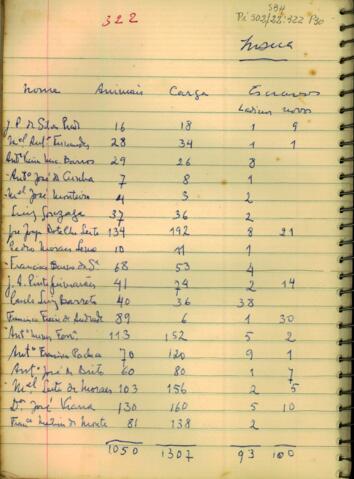 322
584
Pi 302/22-322 P30
Nome Animais Carga Escravos
Ladinos novos
J. P. da Silva Prat 16 18 1 9
Mel Antº Fernandes 28 34 1 1
Antº Barros 29 26 8
Antº José da Cunha 7 8 1
Mel José Monteiro 4 3 2
Luiz Gonzaga 37 36 2
Jose Jorge Botelho Leite 134 192 8 21
Pedro Moraes Lema 10 11 1
Francisco Bueno da Sª 68 53 4
J. A. Pinto Guimarães 41 74 2 14
Carlos Luiz Barreto 40 36 38
Francisco Franco de Andrade 89 6 1 30
Antº Nunes Ferrª 113 152 5 2
Antº Francisco Pacha 70 120 9 1
Antº José de Brito 60 80 1 7
Mel Leite de Moraes 103 156 2 5
Dor José Viana 130 160 5 10
Franco de Monte 81 138 2
1050 1307 93 100